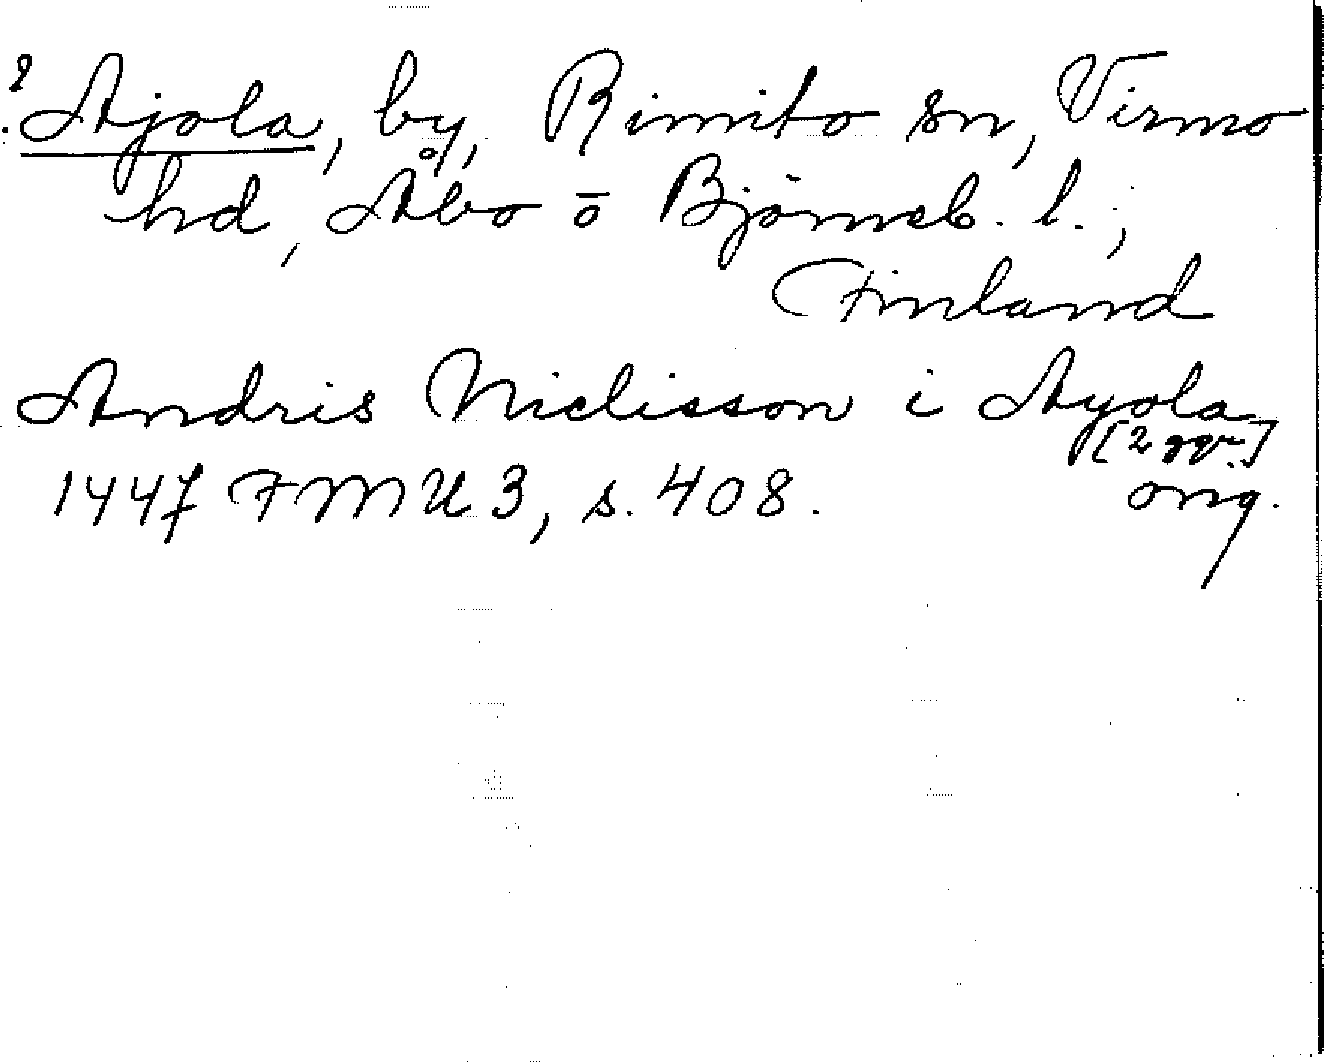 ? Ajola, by, Rimito sn, Virmo
hd, Åbo o Björneb. l.,
Finland
Andris Niclisson i Ayola
[2 ggr]
1447 FMU 3, s. 408. orig.